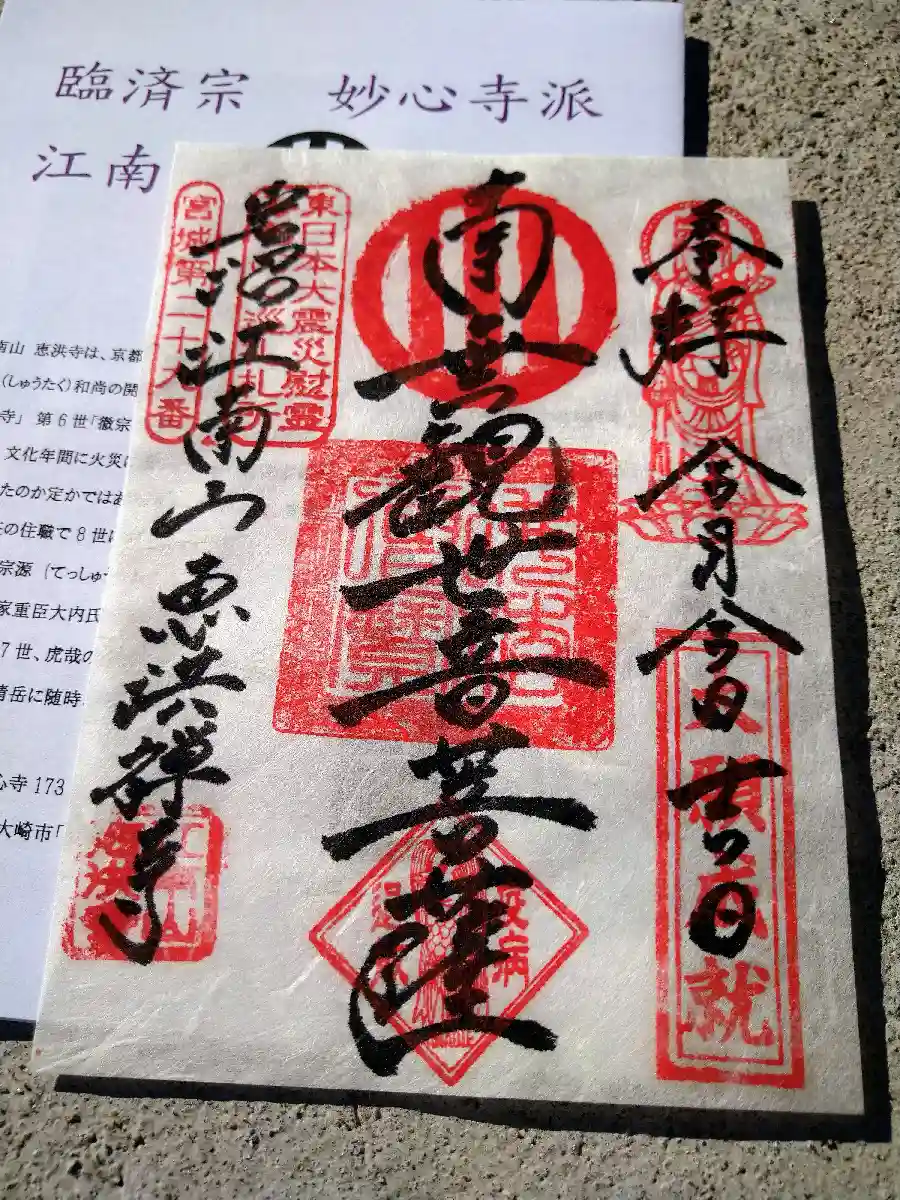 臨済宗 妙心寺派
江南
南山 恵洪寺は、京都
(しゅうたく)和尚の開
寺」 第6世「徹宗
文化年間に火災に
たのか定かではあ
の住職で8世に
宗源 (てっしゅ
家重臣大内氏
7世、虎哉の
清岳に随時
心寺 173
大崎市「
奉拝
大願成就
南無観世音菩薩
仏法僧寶
疫病
東日本大震災慰霊
巡礼
宮城第二十九番
岩沼江南山恵洪禅寺